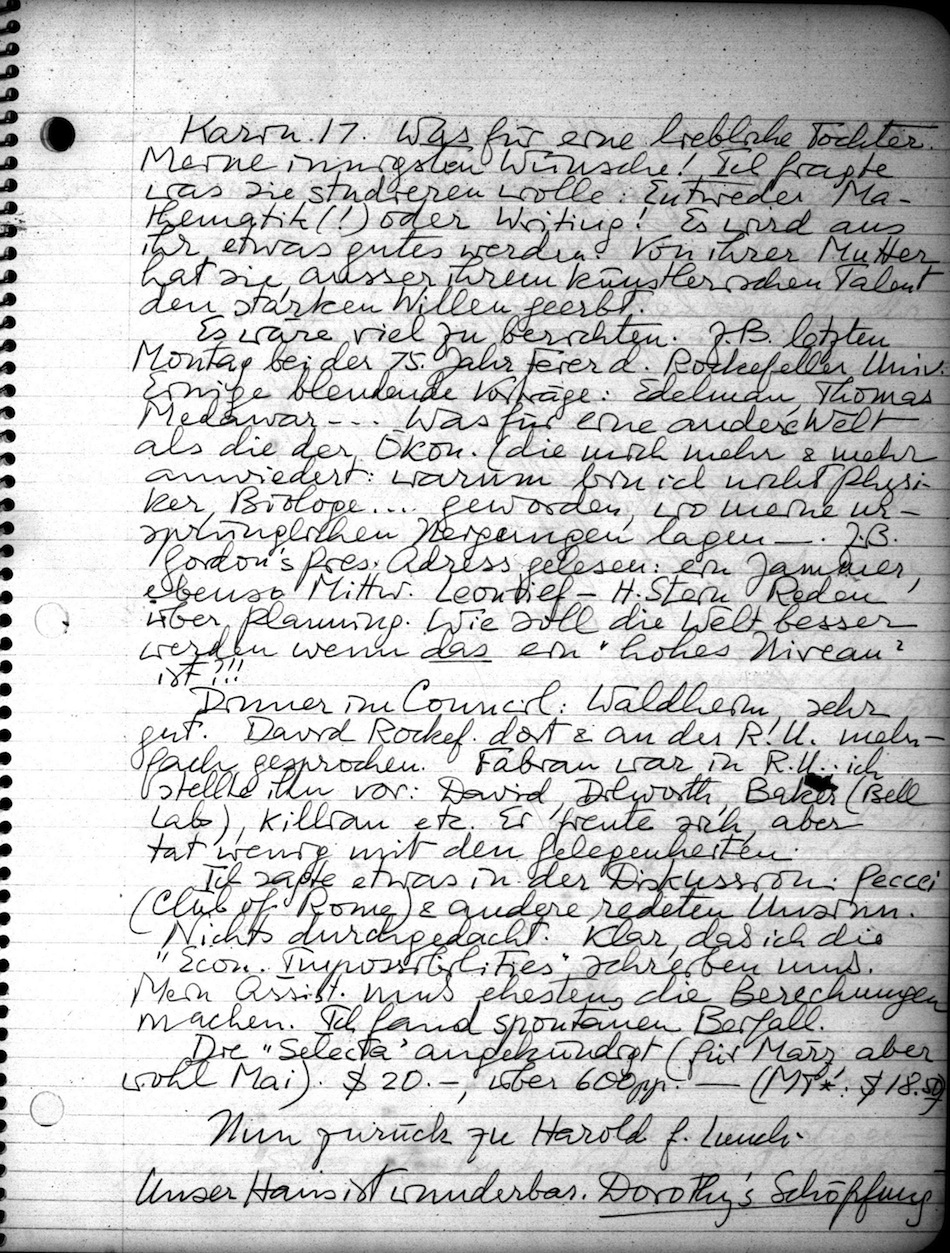 Karin 17. Was für eine liebliche Tochter.
Meine innigsten Wünsche! Ich fragte
was sie studieren wolle: Entweder Ma-
thematik (!) oder Writing! Es wird aus
ihr etwas gutes werden. Von ihrer Mutter
hat sie, ausser ihrem künstlerischen Talent
den starken Willen geerbt.
Es wäre viel zu berichten. z.B. letzten
Montag bei der 75. Jahr Feier d. Rockefeller Univ.
Einige blendende Vorträge: Edelman, Thomas
Medawar --- Was für eine andere Welt
als die der Ökon. (die mich mehr & mehr
anwiedert: warum bin ich nicht Physi-
ker, Biologe... geworden, wo meine ur-
sprünglichen Neigungen lagen —. Z.B.
Gordon's Pres. Adress gelesen: ein Jammer,
ebenso Mittw. Leontief - H. Stein Reden
über Planning. Wie soll die Welt besser
werden wenn das ein "hohes Niveau"
ist?!!
Dinner im Council: Waldheim, sehr
gut. David Rockef. dort & an der R.U. mehr-
fach gesprochen. Fabian war in R.U.. ich
stellte ihn vor: David, Dilworth, Baker (Bell
Labs), Killian etc. Er freute sich, aber
tat wenig mit den Gelegenheiten.
Ich sagte etwas in der Diskussion: Peccei
(Club of Rome) & andere redeten Unsinn.
Nichts durchgedacht. Klar, das ich die
"Econ. Impossibilities" schreiben muss.
Mein Assist. muss ehestens die Berechungen
machen. Ich fand spontanen Beifall.
Die "Selecta" angekündigt (für März, aber
wohl Mai). $ 20.-, über 600pp. — (MT*: $ 18.50)
Nun zurück zu Harold f. Lunch.
Unser Haus ist wunderbar. Dorothy's Schöpfung